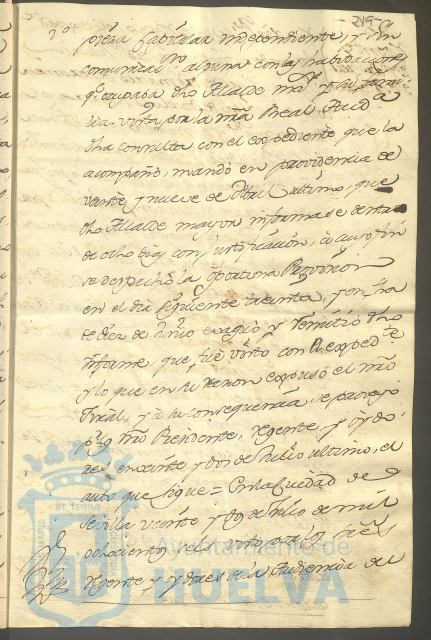 219
2º pieza Capitular independiente, y sin
comunicac.ⁿ alguna con las habitaciones
q.e ocupaba dho Alcalde m.or y su fami
lia. Vista por la nra Real Aud.a
dha consulta con el expediente que la
acompaño, mandó en providencia de
veinte y nueve de Abril ultimo, que
dho Alcalde mayor informase dentro
de ocho dias con justificacion, á cuyo fin
se despachó la oportuna Provision
en el dia siguiente treinta, y en fha
de diez de Junio evaquó y remitió dho
Informe, que fue visto con el exped.te
y lo que en su razon expuso el nro
Fiscal, y á su consequencia se proveyó
por nro Presidente, Regente, y oydo
res en veinte y dos de Julio ultimo, el
auto que sigue = En la Ciudad de
Sevilla veinte y dos de Julio de mil
ochocientos seis visto por los Sres
Regente y oydores de la Audiencia de
Ayuntamiento de
HUELVA